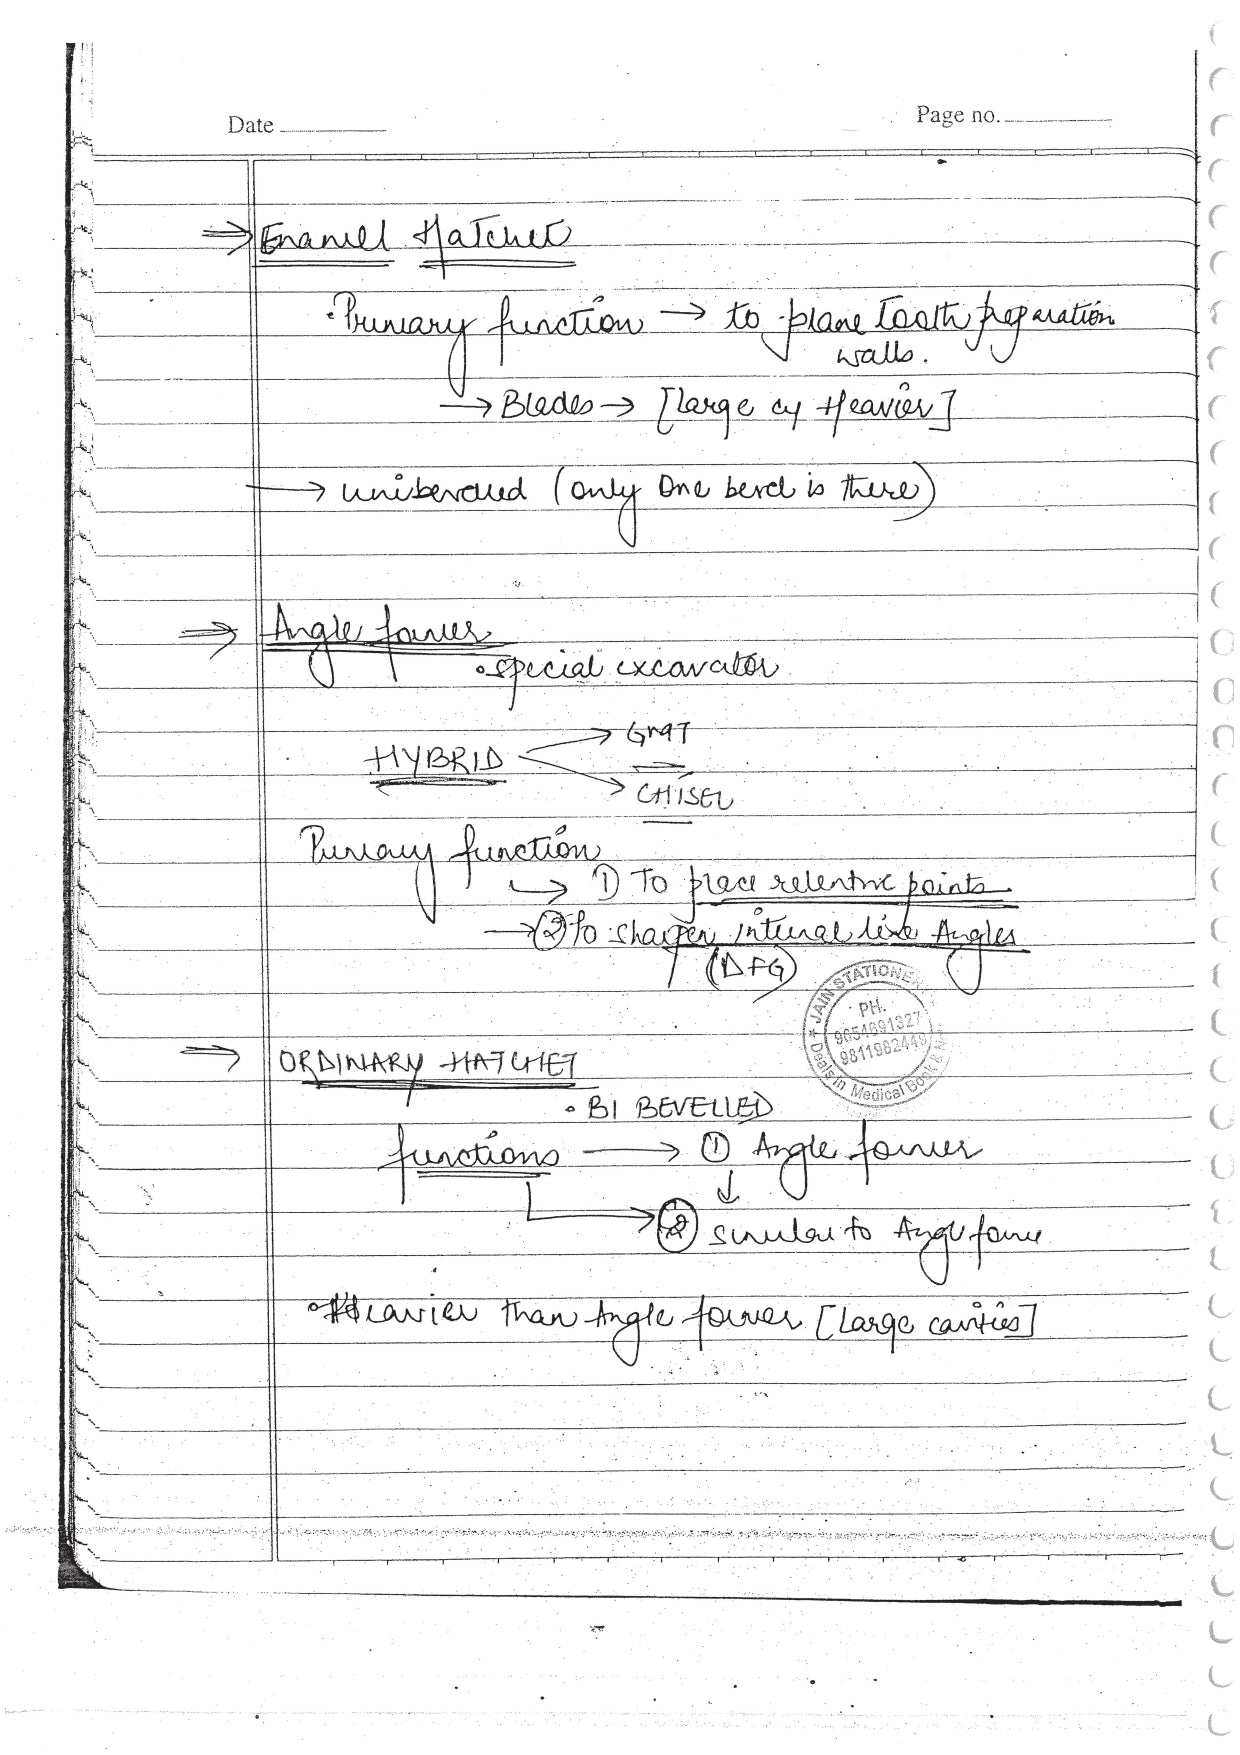 Date
Page no.
⇒ Enamel Hatchet
· Primary function → to plane Tooth preparation
walls.
→ Blades → [Large Heavier]
→ unibevelled (only One bevel is there)
⇒ Angle former
• special excavator
HYBRID
→ CHISEL
Primary function
→ 1) To place retentive points
→ ② To sharpen internal line Angles
(DFG)
JAIN STATIONER
PH.
9654691327
9811982449
Deals in Medical Book &
⇒ ORDINARY HATCHET
• BI BEVELLED
functions → ① Angle former
↓
→ ② similar to Angle forme
• Heavier than Angle former [Large cavities]